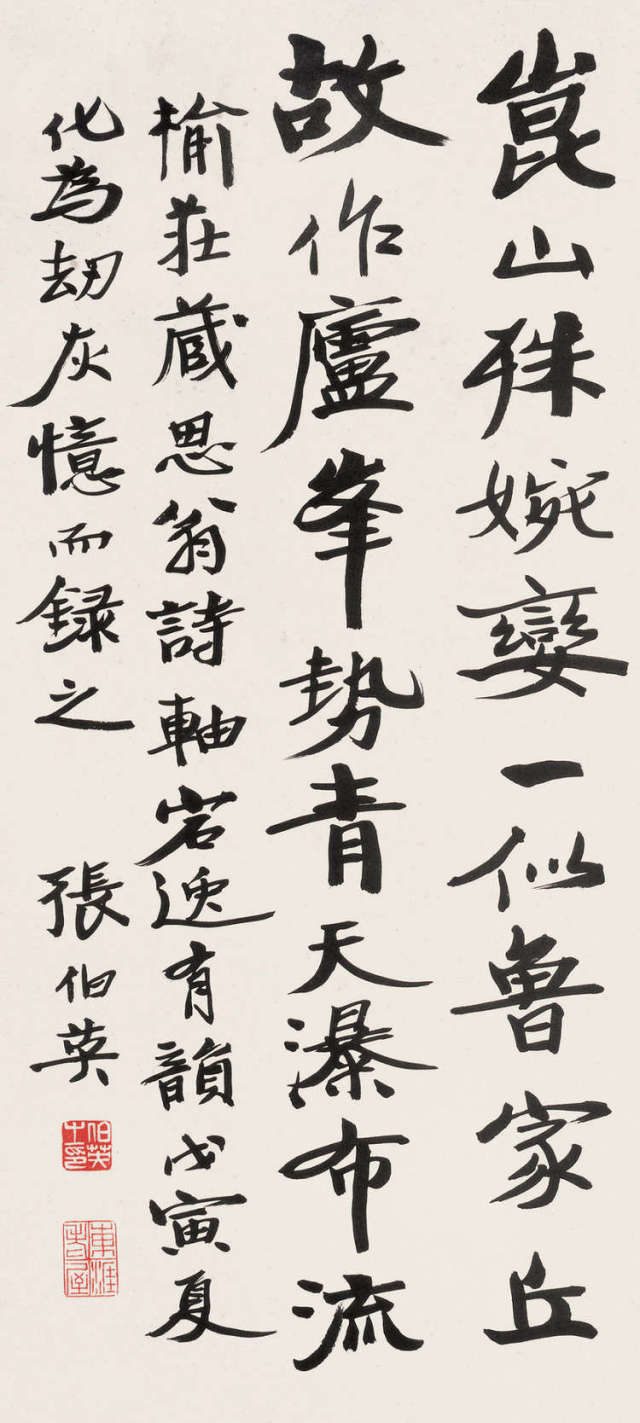 崑山殊婉孌一似魯家丘
故作廬峯勢青天瀑布流
榆莊蔵思翁詩軸宕逸有韻戊寅夏
化為劫灰憶而録之 張伯英
伯英